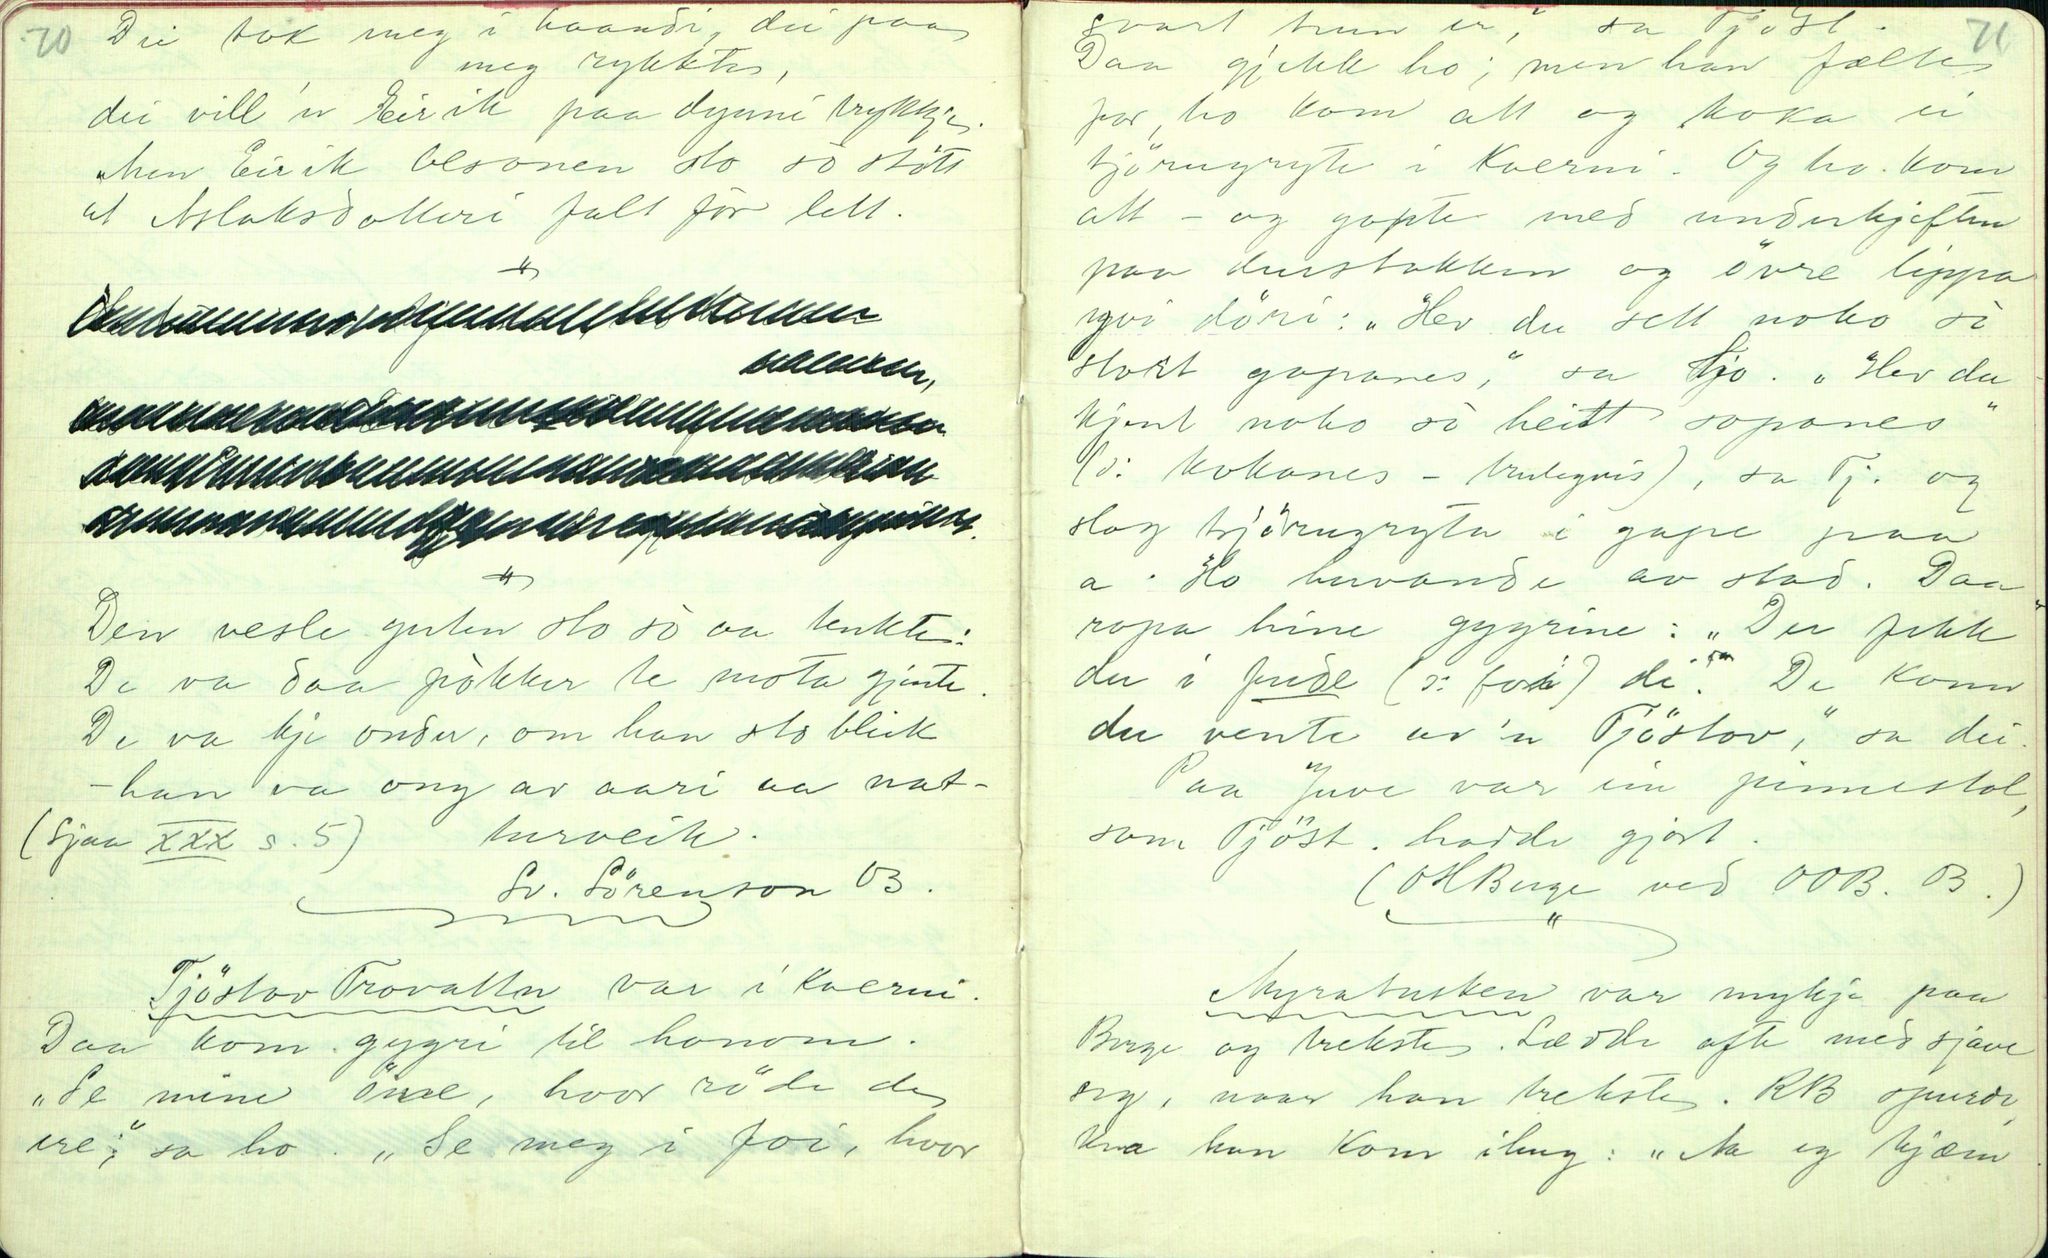 70
Dei tok meg i haandi, dei paa
meg rykkte,
dei vill 'n Eirik paa dynni trykkje.
Men Eirik Olsonen sto so stött
at Aslaksdotteri fall for lett.
"
"
Den vesle guten sto so aa tenkte:
De va daa pokker te mota gjente.
De va kje onder, om han sto bleik
– han va ong av aari aa nat-
(Sjaa XXX s. 5) turveik.
Sv. Sörenson OB.
Tjöstov Trovattn var i kverni.
Daa kom gygri til honom.
"Se mine öine, hvor röde de
ere," sa ho. "Se meg i foi, hvor
71
svart hun er," sa Tjöst.
Daa gjekk ho; men han fælte
for, ho kom att og koka ei
tjörugryte i kverni. Og ho kom
att – og gapte med underkjeften
paa durstokken og övre lippa
yvi döri: "Hev du sett noko so
stort gapanes," sa Tjo. "Hev du
kjent noko so heitt sopanes"
(ɔ: kokanes – trulegvis), sa Tj. og
slog tjörugryta i gape paa
a. Ho huvande av stad. Daa
ropa hine gygrine: "Der fekk
du i fude (ɔ: foi) di." "De konn
du vente av 'n Tjöstov," sa dei.
Paa Juve var ein pinnestol,
som Tjöst. hadde gjort.
(OHBerge ved OOB. B.)
"
Myrabusken var mykje paa
Berge og trekste. Lædde ofte med sjave
seg, naar han trekste. RB spurde,
kva han kom ihug: "Aa eg kjæm